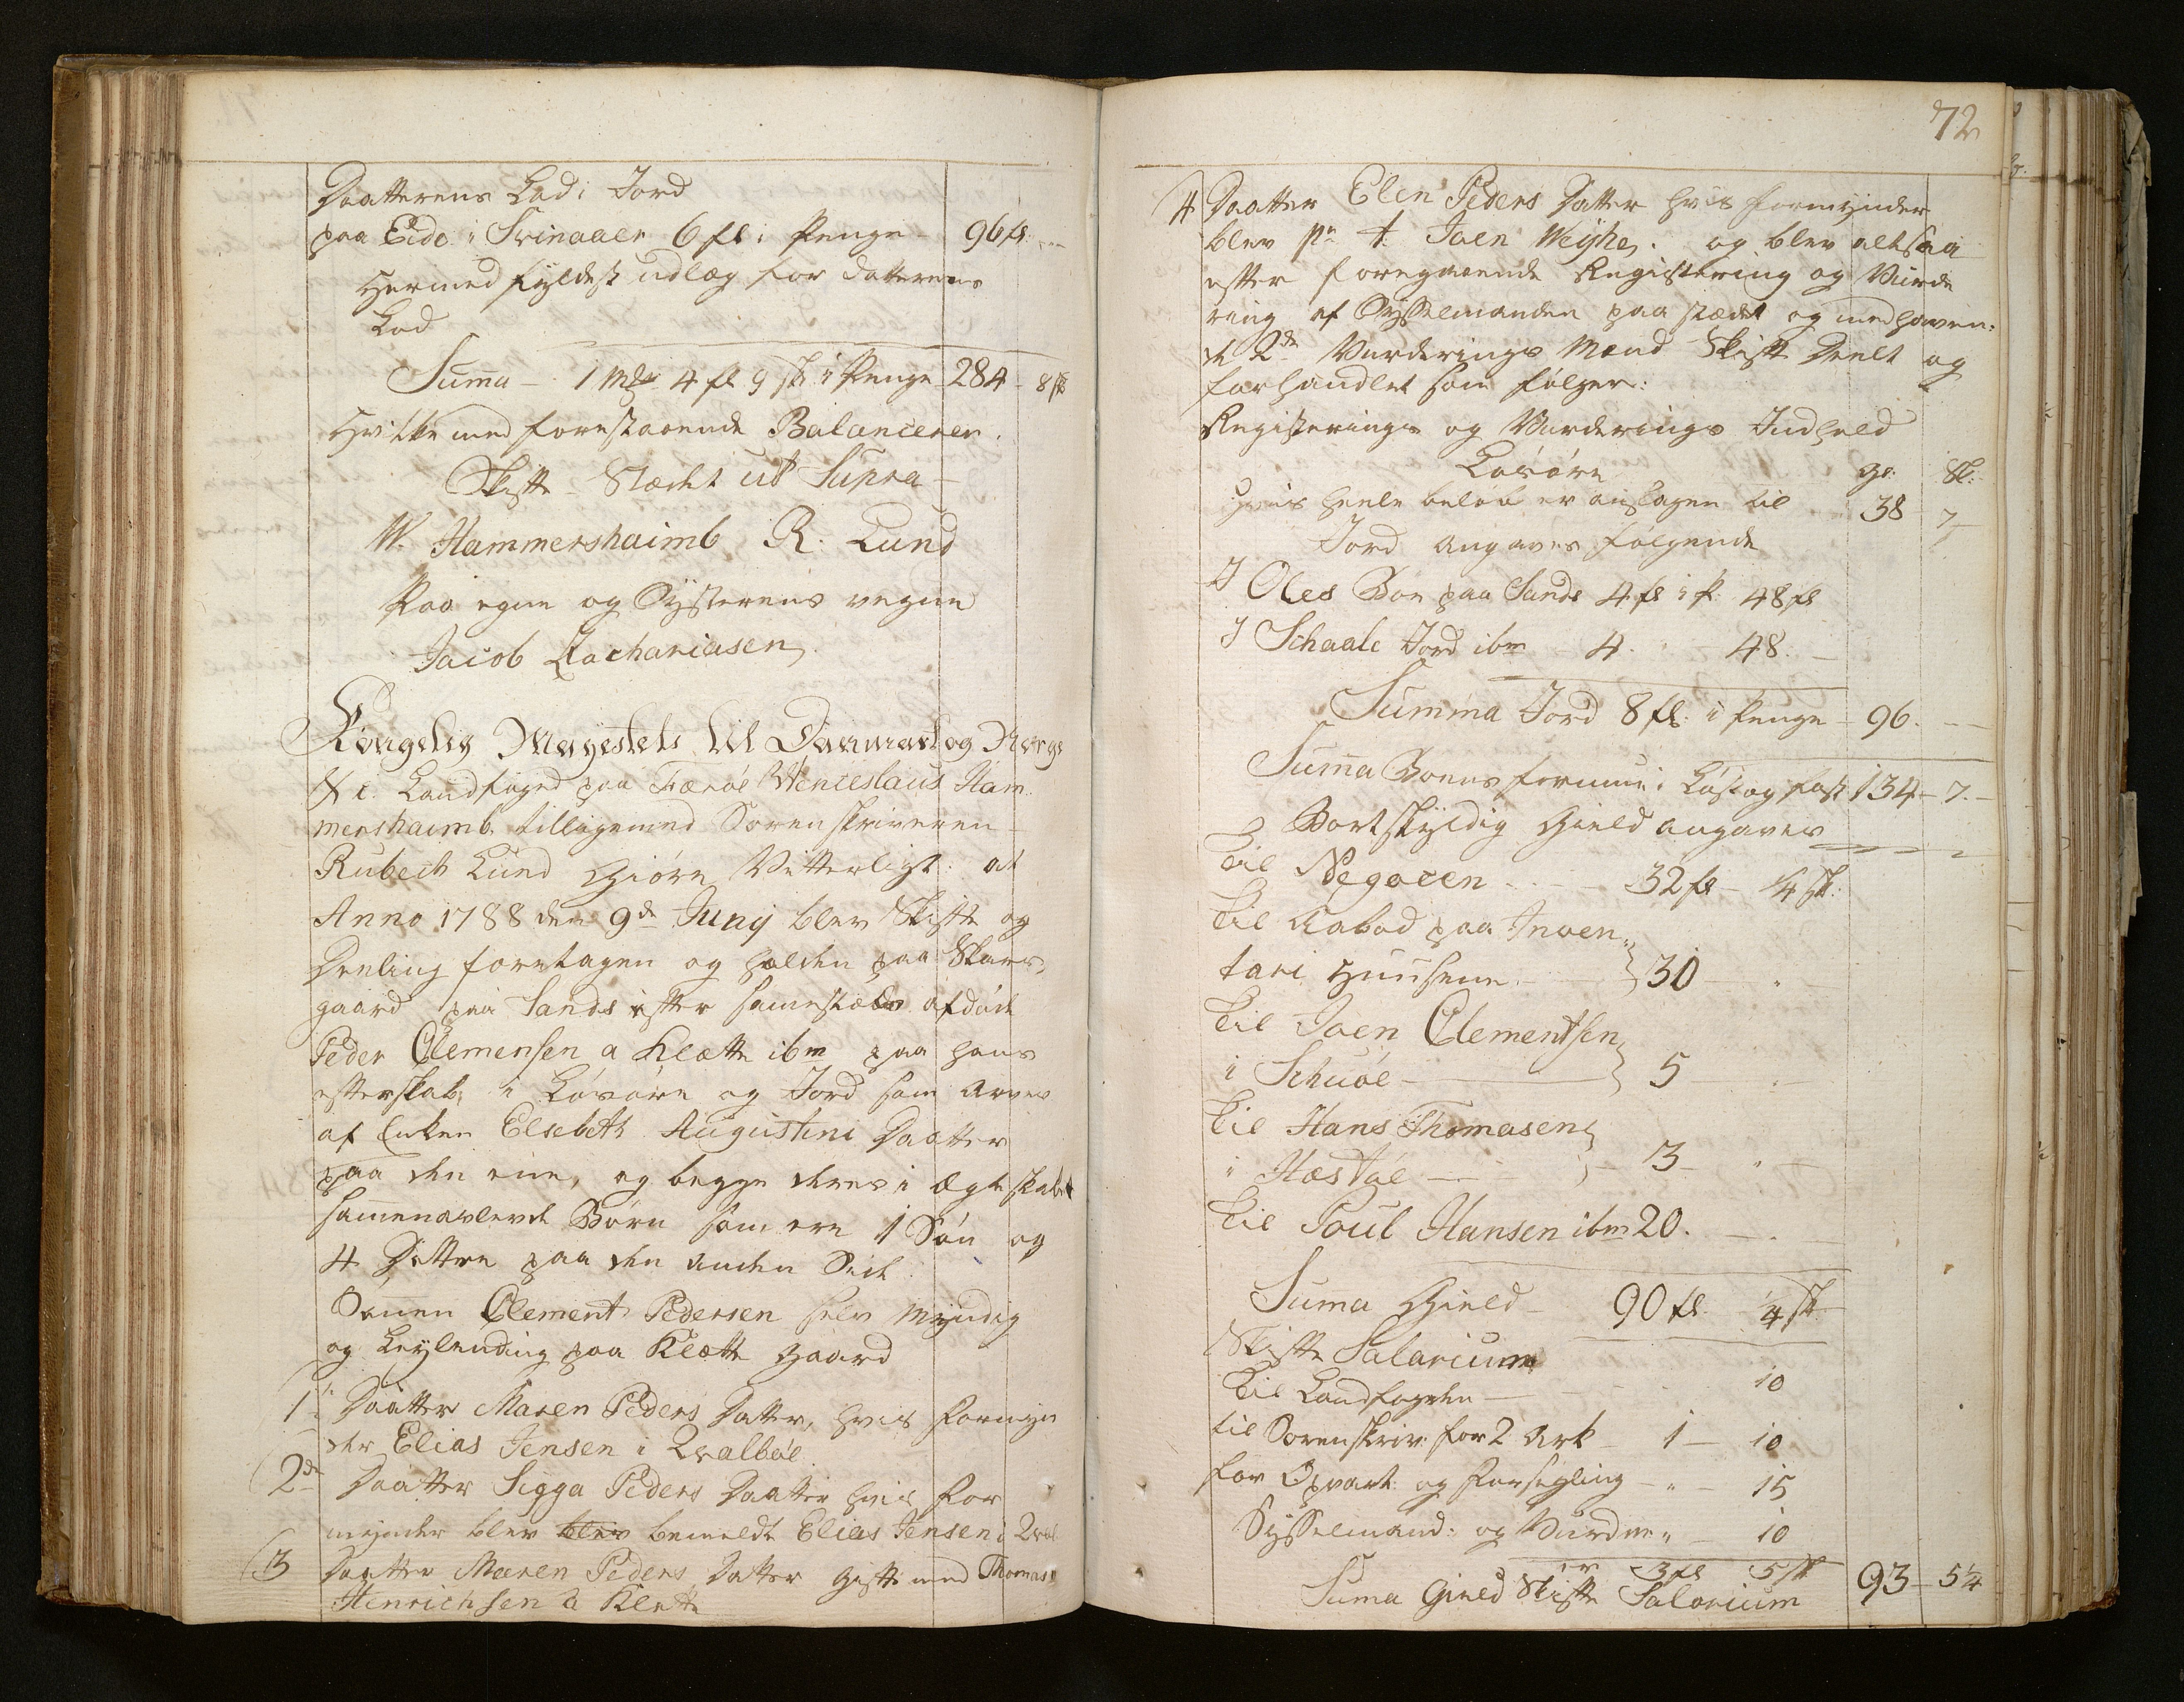 Daatterens Lod i Jord
paa Eide i Svinaaer 6 fl: i Penge - 96 fl:
Hermed fyldest udlæg for datterens
Lod
Summa - 1 Mk 4 fl 9 sk i Penge 284 - 8 sk
Hvilke med forestaaende Balancerer.
Skifte Stædet ut Supra -
W. Hammershaimb R. Lund
Paa egne og Systerens vegne
Jacob Zachariasen
Kongelig Mayestets til Danmark og Norge
&c. Landfoged paa Færöe Wenceslaus Ham-
mershaimb, tilligemed Sorenskriveren
Rubech Lund Giöre Vitterligt: at
Anno 1788 den 9de Junij blev Skifte og
Deeling foretagen og holden paa Skaar-
gaard paa Sands efter sammestæds afdöde
Peder Clemensen a Klætte ibm paa hans
efterskab, i Lösöre og Jord som arves
af Enken Elsebeth Augustini Daatter
paa den eene, og begge deres i Ægteskabet
sammenavlede Börn som ere 1 Sön og
4 Döttre paa den anden Side:
Sönnen Clement Pedersen selv Myndig
og Leylending paa Klætte Gaard
1te Daatter Maren Peders Datter, hvis Formyn
der Elias Jensen i Qvalböe.
2de Daatter Sigga Peders Daatter hvis For
mynder blev blev bemeldte Elias Jensen i Qval
3 Daatter Maren Peders Datter gift med Thomas
Henrichsen a Klette
72
4 Daatter Elen Peders Datter hvis formynder
blev p: t: Joen Weyhe. og blev altsaa
efter foregaaende Registering og Vurde
ring af Sysselmanden paa stædet og medhaven-
de 2de Vurderings Mænd Skifte Deelt og
forhandlet som fölger:
Registerings og Vurderings Indhold
Lösöre gl: Sk:
hvis heele belöb er anslagen til 38 7
Jord angaves fölgende
I Oles Boe paa Sande 4 fl i P: 48 fl
I Schaale Jord ibm - 4. - 48. -
Summa Jord 8 fl: i Penge - 96. -
Summa Boens formue i Löst og fast 134 - 7. -
Bortskyldig Gield angaves
Til Negocen - 32 fl - 4 sk:
Til Aabod paa Inven-
tari Huusene. - 30 - -
Til Joen Clementsen
i Schuöe - 5 -
Til Hans Thomasen
i Hæstöe - 3 -
Til Poul Hansen ibm 20. -
Suma Gield - 90 fl. 4 sk.
Skifte Salarium
Til Landfogden - 10
til Sorenskriv: for 2 Ark - 1 - 10
for Opvart: og Forsegling - " - 15
Sysselmand: og Vurdm: " - 10
er 3 fl 5 sk
Suma Gield Skifte Salarium 93 - 5 4